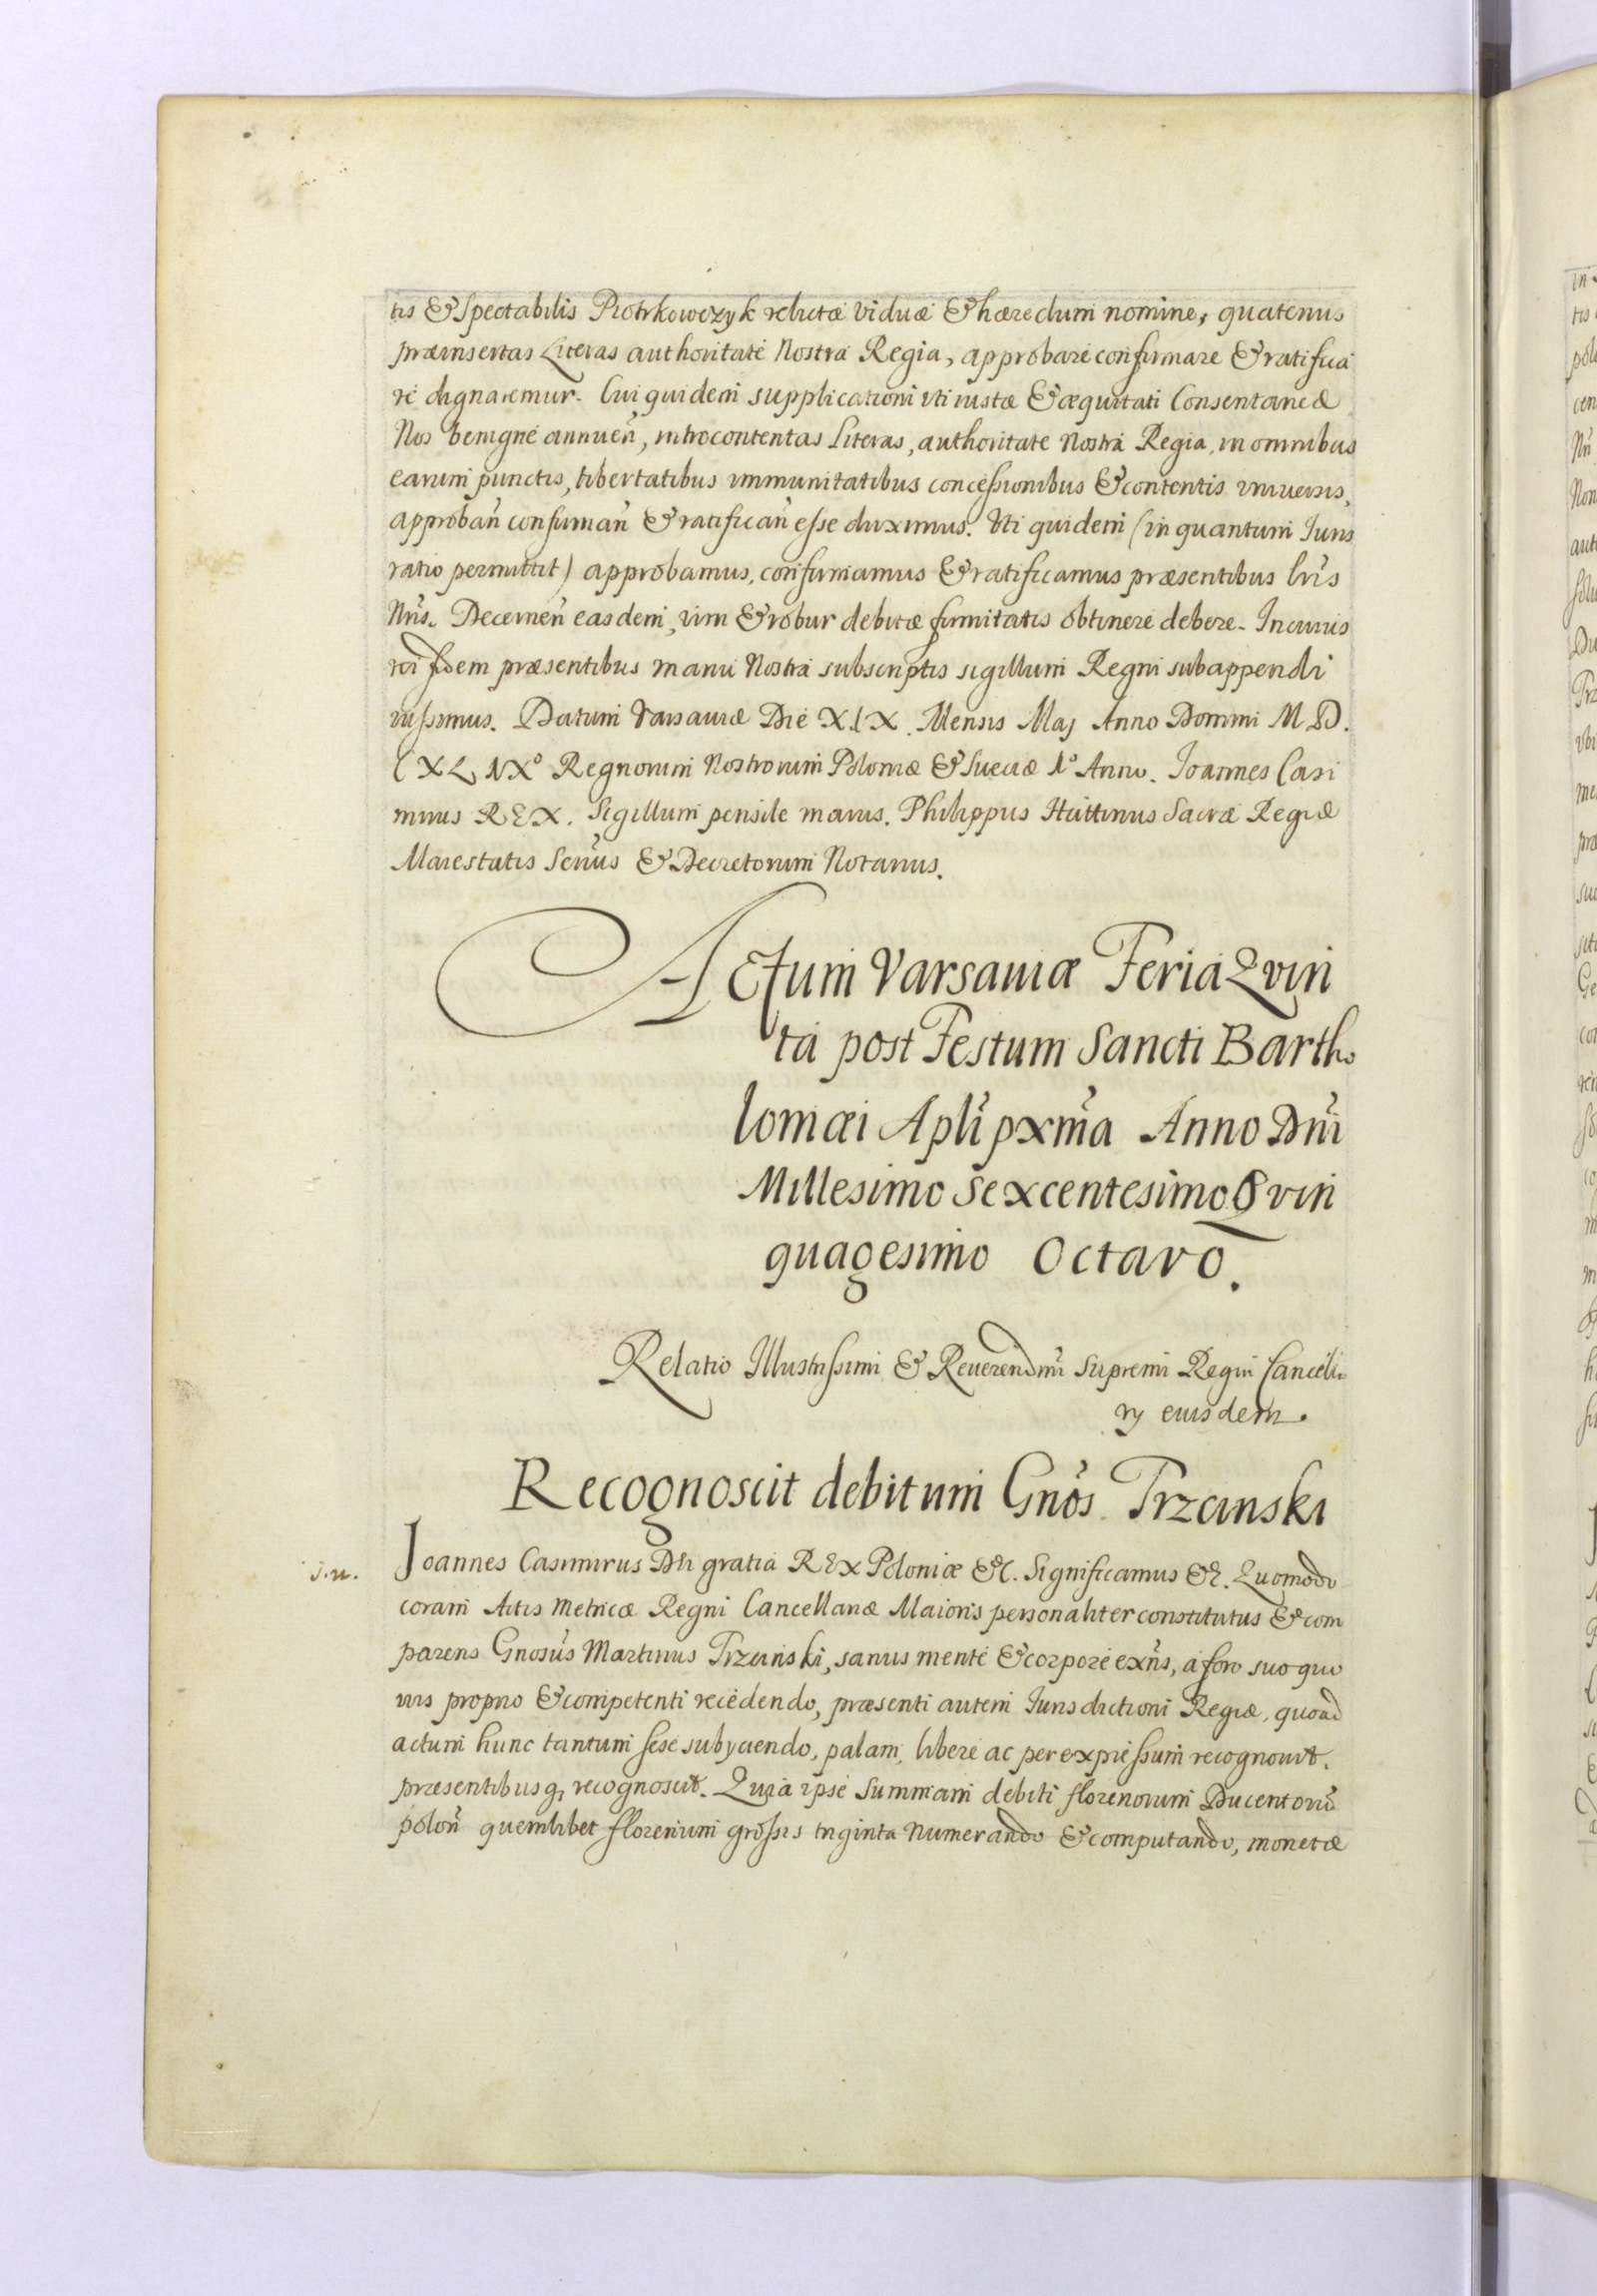 tis & Spectabilis Piotrkowczyk relictæ viduæ & hæredum nomine, quatenus
præinsertas Literas authoritate Nostra Regia, approbare confirmare & ratifica
re dignaremur. Cui quidem supplicationi uti iustæ & æquitati Consentaneæ
Nos benigne annuen̄, introcontentas Literas, authoritate Nostra Regia, in omnibus
earum punctis, libertatibus immunitatibus concessionibus & contentis universis,
approban̄ confirman̄ & ratifican̄ esse duximus. Uti quidem (in quantum Iuris
ratio permittit) approbamus, confirmamus & ratificamus præsentibus lrīs
Nrīs. Decernen̄ easdem, vim & robur debitæ firmitatis obtinere debere. In cuius
rei fidem præsentibus manu Nostra subscriptis sigillum Regni subappendi
iussimus. Datum Varsaviæ Die XIX. Mensis Maj Anno Domini M.D.
CXLIX° Regnorum Nostrorum Poloniæ & Sueciæ 1° Anno. Ioannes Casi
mirus REX. Sigillum pensile maius. Philippus Huttinus Sacræ Regiæ
Maiestatis Seriūs & Decretorum Notarius.
Actum Varsaviæ Feria Qvin
ta post Festum Sancti Bartho
lomæi Aplī pxm̄a Anno Dnī
Millesimo Sexcentesimo Qvin
quagesimo Octavo.
Relatio Illustrissimi & Reverendmī Supremi Regni Cancella
rij eiusdem.
Recognoscit debitum Gnōs Trzcinski
Ioannes Casimirus Dei gratia REX Poloniæ &c. Significamus &c. Quomodo
coram Actis Metricæ Regni Cancellariæ Maioris personaliter constitutus & com
parens Gnosūs Martinus Trzcinski, sanus mente & corpore exn̄s, a foro suo quo
vis proprio & competenti recedendo, præsenti autem Iurisdictioni Regiæ, quoad
actum hunc tantum sese subyciendo, palam, libere ac per expressum recognovit,
præsentibusq, recognoscit. Quia ipse summam debiti florenorum Ducentorū
polon̄ quemlibet florenum grossis triginta numerando & computando, monetæ